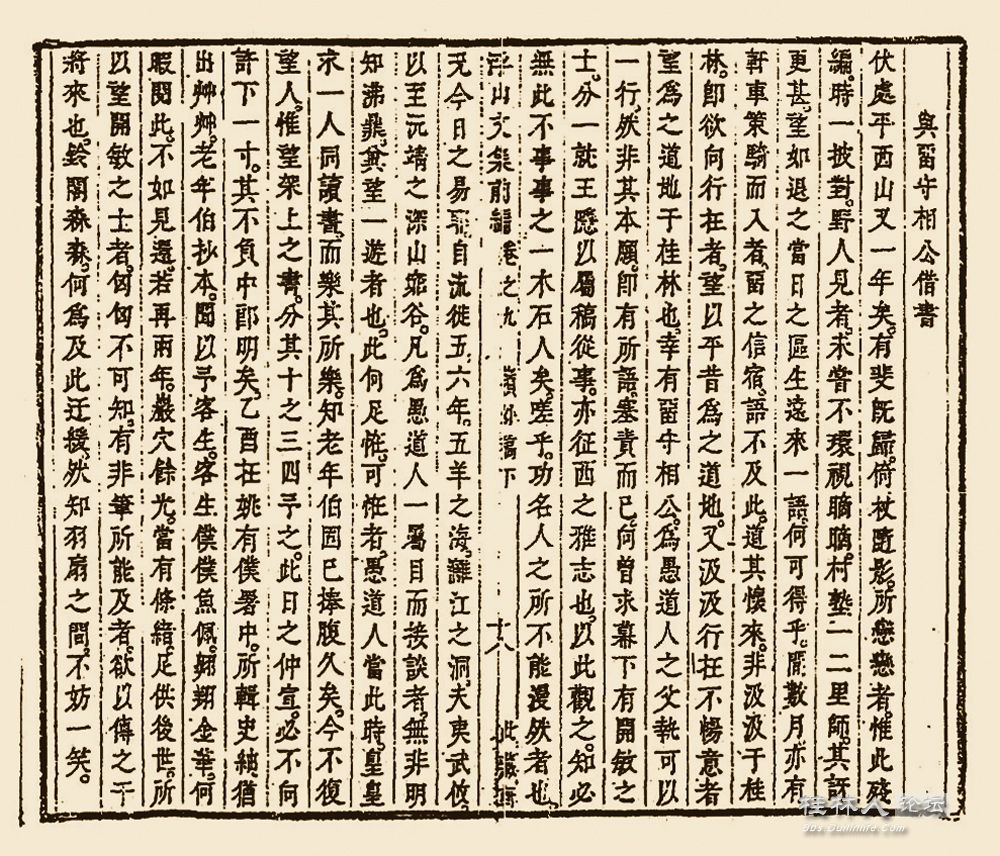 與留守相公借書
伏處平西山又一年矣。有斐既歸。倚杖隨影。所戀戀者。惟此殘
編。時一披對。野人見者。未嘗不環視䀡䀡。村塾一二里師。其訝
更甚。望如退之當日之區生遠來一語。何可得乎。閒數月。亦有
軒車策騎而入者。留之信宿。語不及此。道其懷來。非汲汲于桂
林。卽欲向行在者。望以平昔爲之道地。又汲汲行在不暢意者
望爲之道地于桂林也。幸有留守相公。爲愚道人之父執可以
一行。然非其本願。卽有所語。塞責而已。何曾求幕下有開敏之
士。分一就王應以屬稿從事。亦征西之雅志也。以此觀之。知必
無此不事事之一木石人矣。嗟乎。功名人之所不能漫然者也
浮山文集前編 卷之九 嶺外稿下 十八 此藏軒
无今日之易 自流徙五六年。五羊之海。灕江之洞。夫夷武攸。
以至沅靖之深山 谷。凡爲愚道人一屬目而接談者。無非明
知沸鼎。 望一遊者也。此何足恠。可恠者。愚道人當此時。皇皇
求一人同讀書。而樂其所樂。知老年伯固已捧腹久矣。今不復
望人。惟望架上之書。分其十之三四予之。此日之仲宣。必不向
許下一寸。其不負中郎明矣。乙酉在姚有僕署中。所輯史 猶
出艸艸。老年伯抄本。聞以予客生。客生僕僕魚佩。翱翔金華。何
暇閱此。不如見還。若再兩年。巖穴餘光。當有條緒。足供後世。所
以望開敏之士者。匈匈不可知。有非筆所能及者。欲以傳之于
將來也。鈴閣森森。何爲及此迂援。然知羽扇之間。不妨一笑。
桂林人论坛
bbs.Guilinlife.Com